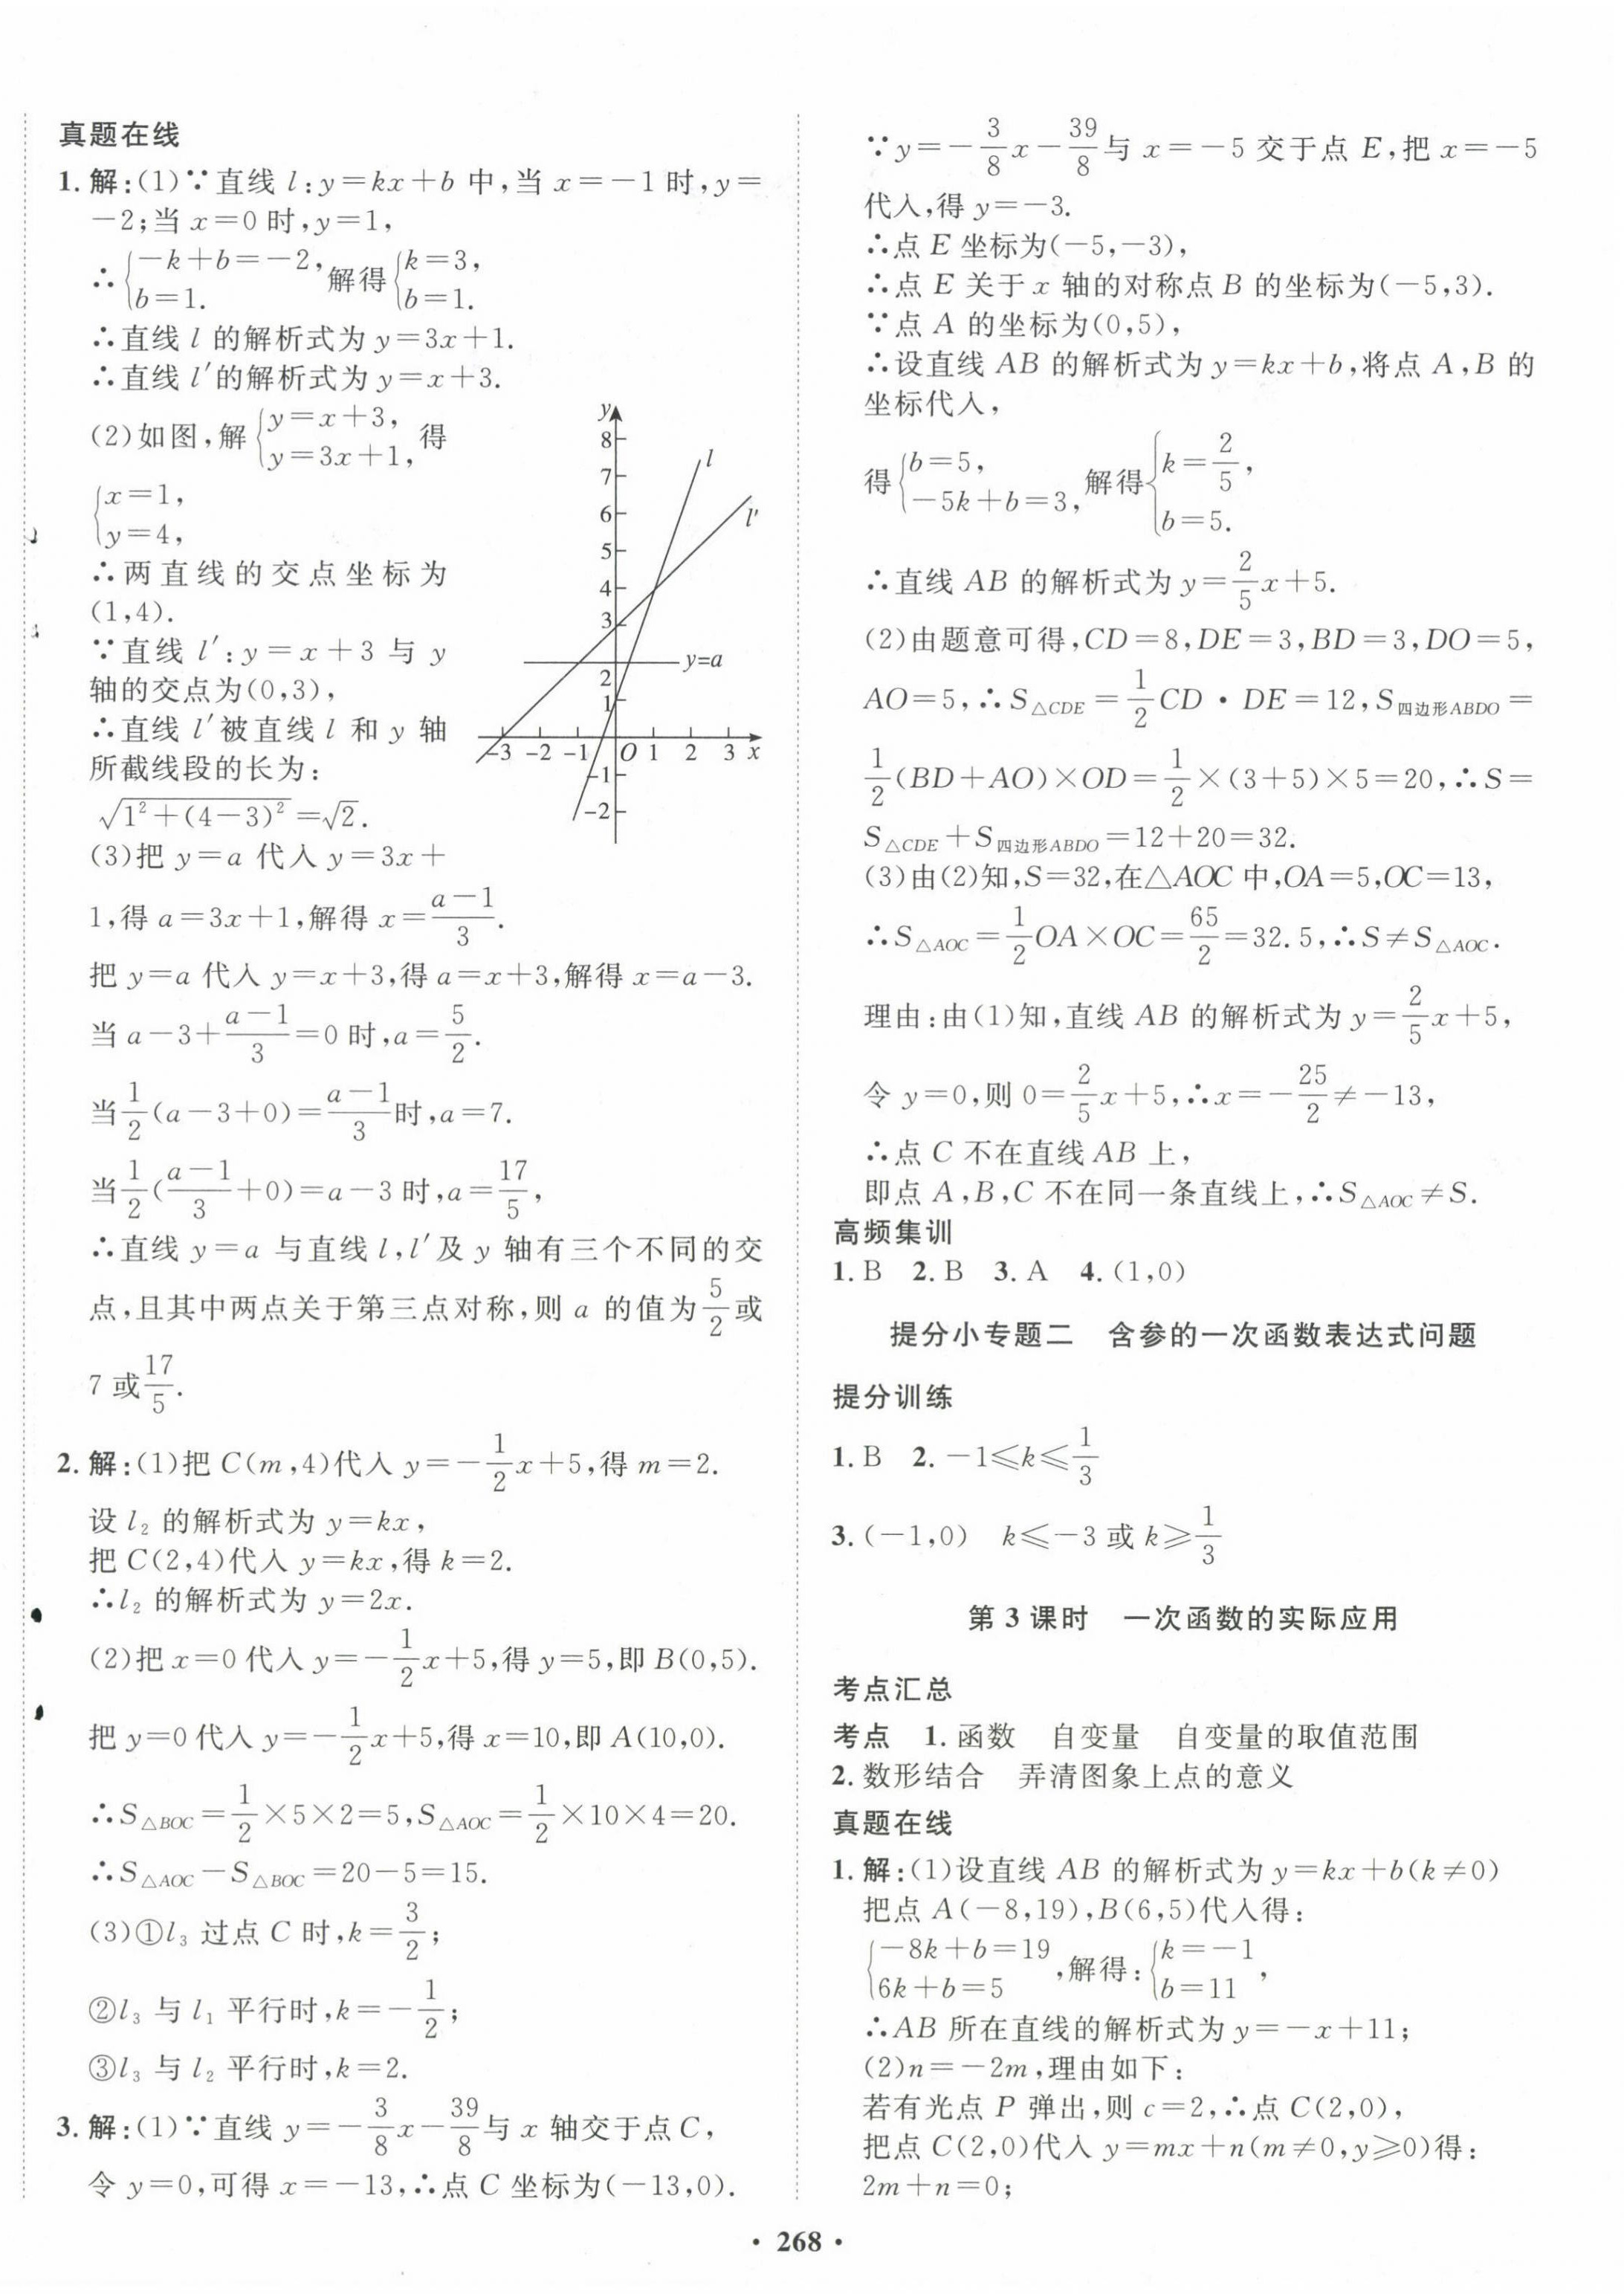 真题在线
1. 解:(1)∵直线 l:y=kx+b 中,当 x=-1 时,y=
-2;当 x=0 时,y=1,
∴{-k+b=-2, b=1. 解得{k=3, b=1.
∴直线 l 的解析式为 y=3x+1.
∴直线 l′的解析式为 y=x+3.
(2)如图,解{y=x+3, y=3x+1, 得
{x=1, y=4,
∴两直线的交点坐标为
(1,4).
∵直线 l′:y=x+3 与 y
轴的交点为(0,3),
∴直线 l′被直线 l 和 y 轴
所截线段的长为:
√(1²+(4-3)²)=√2.
(3)把 y=a 代入 y=3x+
1,得 a=3x+1,解得 x=(a-1)/3.
把 y=a 代入 y=x+3,得 a=x+3,解得 x=a-3.
当 a-3+(a-1)/3=0 时,a=5/2.
当 1/2(a-3+0)=(a-1)/3时,a=7.
当 1/2((a-1)/3+0)=a-3 时,a=17/5,
∴直线 y=a 与直线 l,l′及 y 轴有三个不同的交
点,且其中两点关于第三点对称,则 a 的值为5/2或
7 或17/5.
y
8
7
6
5
4
3
2
1
-3 -2 -1 O 1 2 3 x
-1
-2
l
l′
y=a
2. 解:(1)把 C(m,4)代入 y=-1/2x+5,得 m=2.
设 l₂ 的解析式为 y=kx,
把 C(2,4)代入 y=kx,得 k=2.
∴l₂ 的解析式为 y=2x.
(2)把 x=0 代入 y=-1/2x+5,得 y=5,即 B(0,5).
把 y=0 代入 y=-1/2x+5,得 x=10,即 A(10,0).
∴S△BOC=1/2×5×2=5,S△AOC=1/2×10×4=20.
∴S△AOC-S△BOC=20-5=15.
(3)①l₃ 过点 C 时,k=3/2;
②l₃ 与 l₁ 平行时,k=-1/2;
③l₃ 与 l₂ 平行时,k=2.
3. 解:(1)∵直线 y=-3/8x-39/8与 x 轴交于点 C,
令 y=0,可得 x=-13,∴点 C 坐标为(-13,0).
∵y=-3/8x-39/8与 x=-5 交于点 E,把 x=-5
代入,得 y=-3.
∴点 E 坐标为(-5,-3),
∴点 E 关于 x 轴的对称点 B 的坐标为(-5,3).
∵点 A 的坐标为(0,5),
∴设直线 AB 的解析式为 y=kx+b,将点 A,B 的
坐标代入,
得{b=5, -5k+b=3, 解得{k=2/5, b=5.
∴直线 AB 的解析式为 y=2/5x+5.
(2)由题意可得,CD=8,DE=3,BD=3,DO=5,
AO=5,∴S△CDE=1/2CD·DE=12,S四边形ABDO=
1/2(BD+AO)×OD=1/2×(3+5)×5=20,∴S=
S△CDE+S四边形ABDO=12+20=32.
(3)由(2)知,S=32,在△AOC 中,OA=5,OC=13,
∴S△AOC=1/2OA×OC=65/2=32.5,∴S≠S△AOC.
理由:由(1)知,直线 AB 的解析式为 y=2/5x+5,
令 y=0,则 0=2/5x+5,∴x=-25/2≠-13,
∴点 C 不在直线 AB 上,
即点 A,B,C 不在同一条直线上,∴S△AOC≠S.
高频集训
1. B 2. B 3. A 4. (1,0)
提分小专题二 含参的一次函数表达式问题
提分训练
1. B 2. -1≤k≤1/3
3. (-1,0) k≤-3 或 k≥1/3
第 3 课时 一次函数的实际应用
考点汇总
考点 1. 函数 自变量 自变量的取值范围
2. 数形结合 弄清图象上点的意义
真题在线
1. 解:(1)设直线 AB 的解析式为 y=kx+b(k≠0)
把点 A(-8,19),B(6,5)代入得:
{-8k+b=19 6k+b=5 ,解得:{k=-1 b=11 ,
∴AB 所在直线的解析式为 y=-x+11;
(2)n=-2m,理由如下:
若有光点 P 弹出,则 c=2,∴点 C(2,0),
把点 C(2,0)代入 y=mx+n(m≠0,y≥0)得:
2m+n=0;
· 268 ·